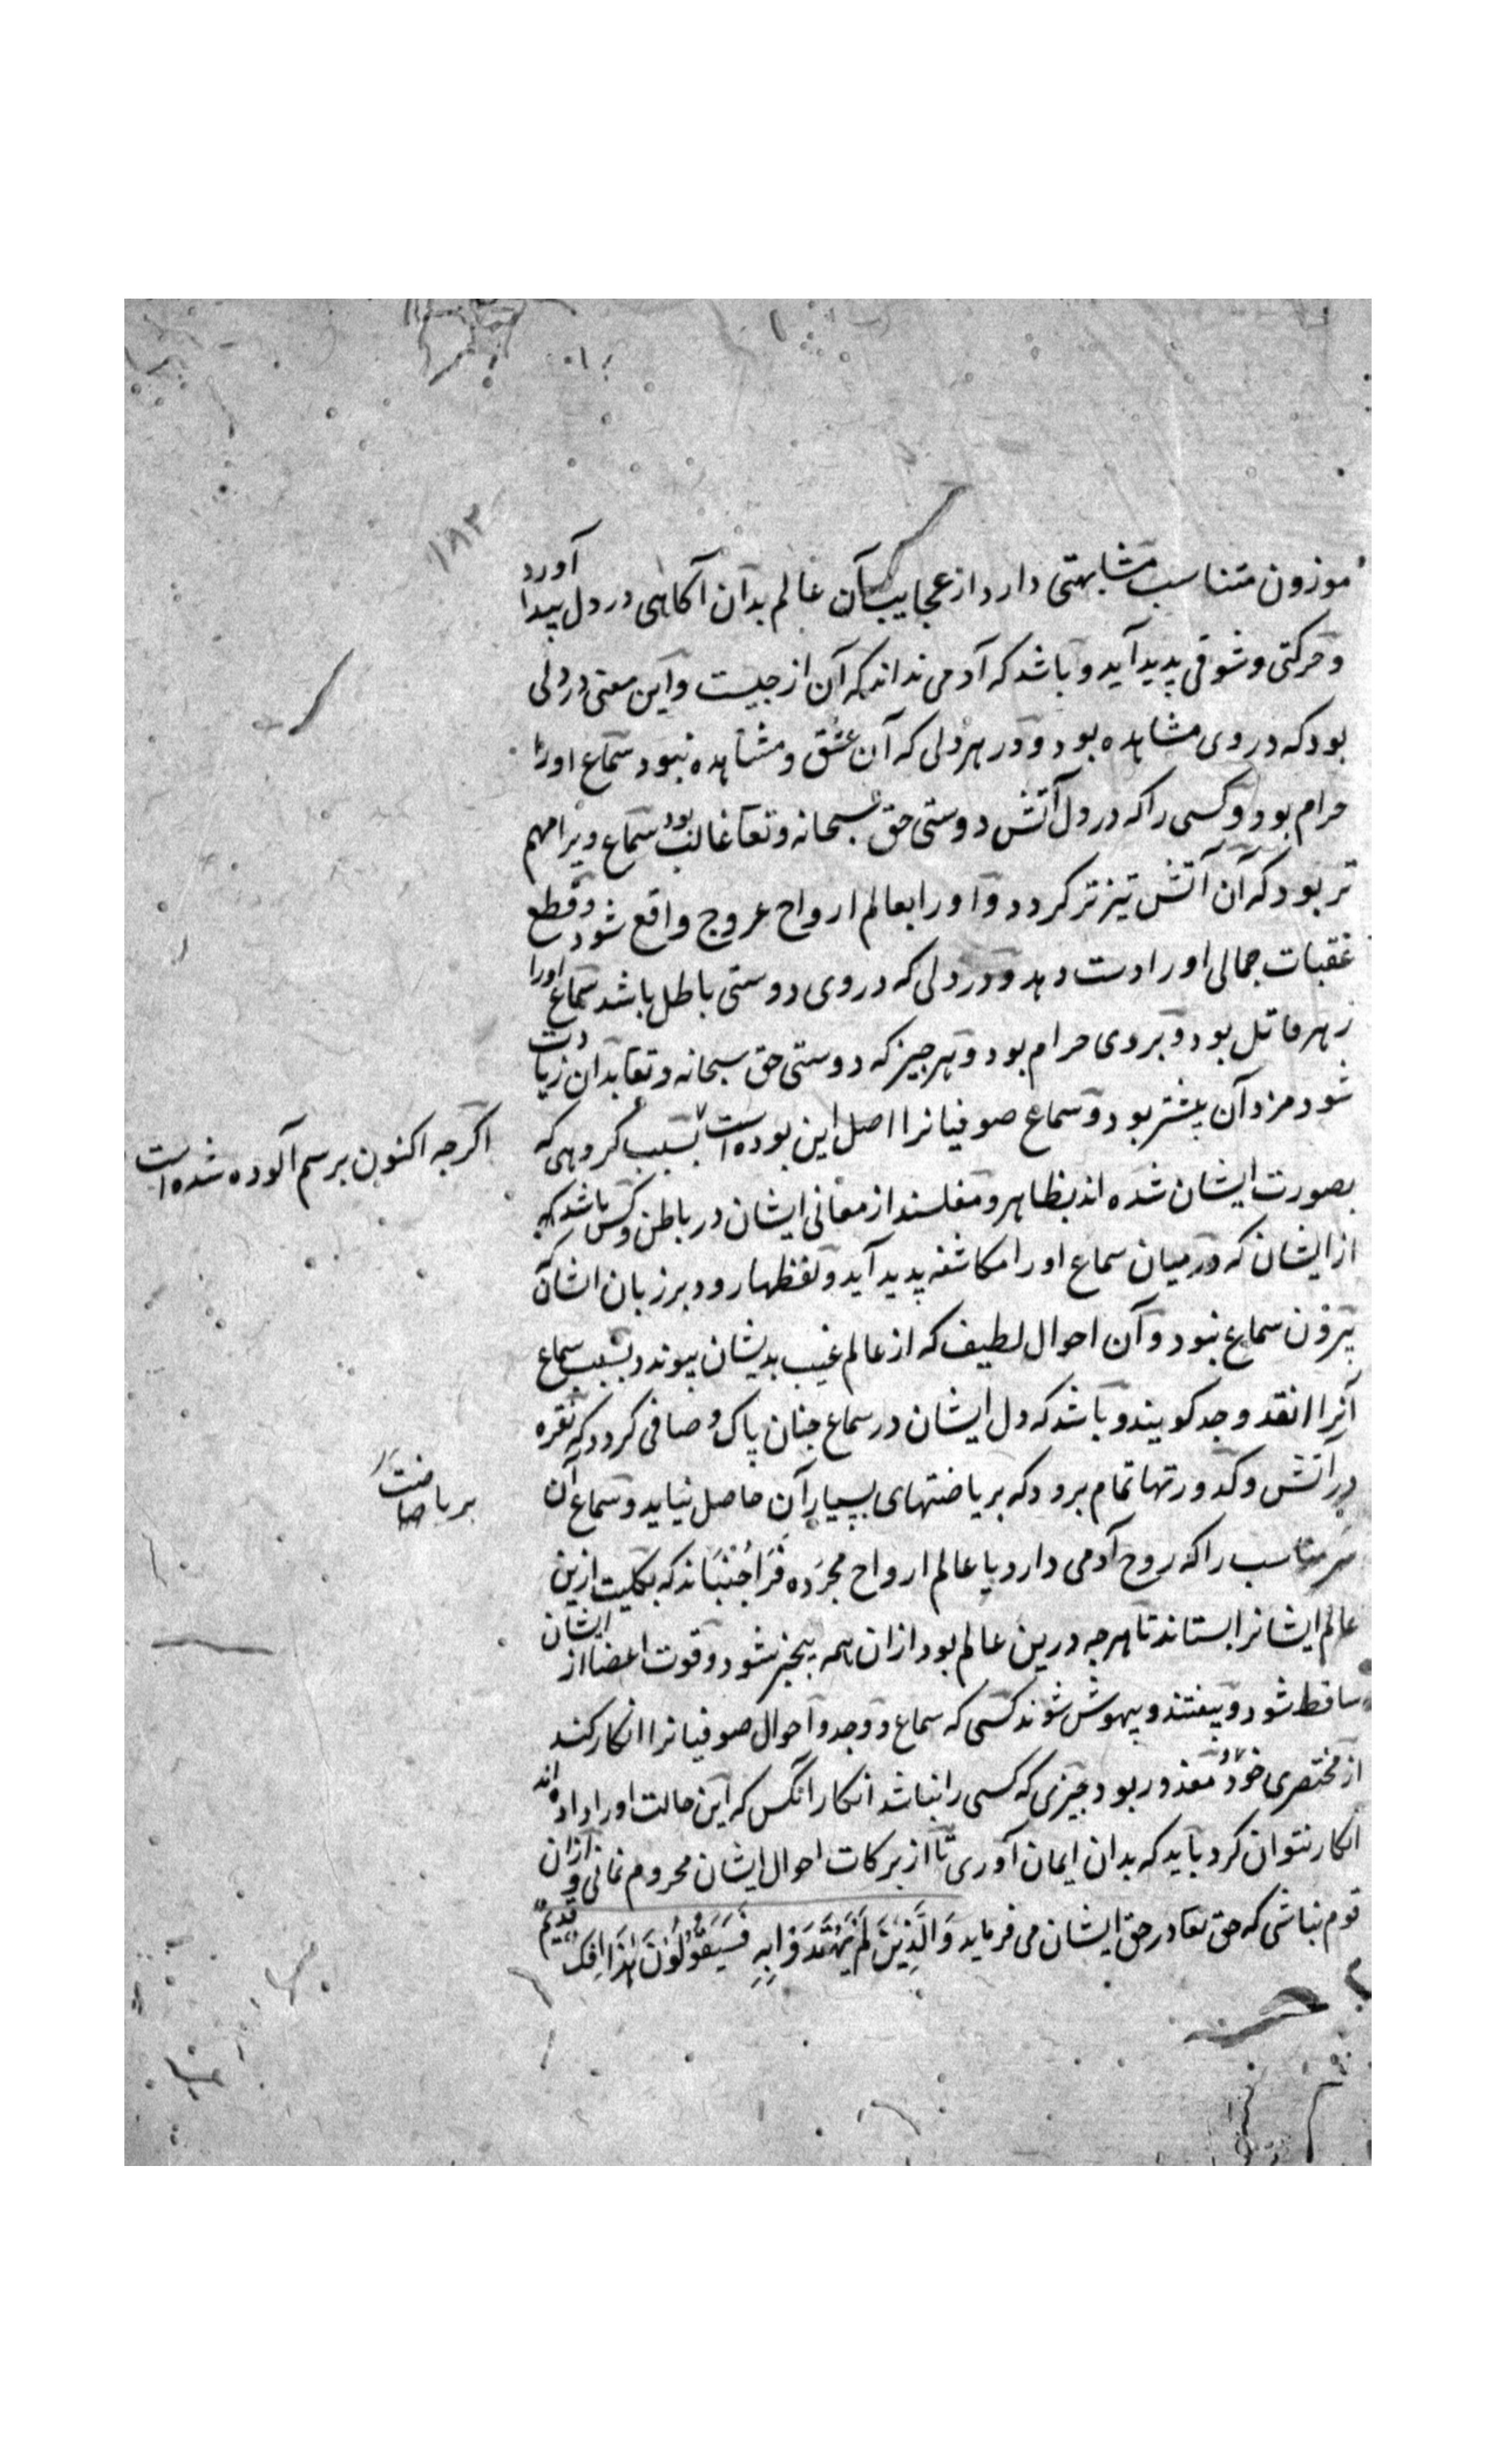 ۱۸۳
موزون متناسب مشابهتی دارد از عجایب آن عالم بدان آکاهی در دل پیدا آورد
و حرکتی و شوقی پدید آید و باشد که آدمی نداند که آن از چیست و این معنی در دلی
بود که در وی مشاهده بود و در هر دلی که آن عشق و مشاهده نبود سماع او را
حرام بود و کسی را که در دل آتش دوستی حق سبحانه و تعا غالب بود سماع ویرا مهم
تر بود که آن آتش تیزتر کردد و او را بعالم ارواح عروج واقع شود و قطع
عقبات جمالی او را دست دهد و در دلی که در وی دوستی باطل باشد سماع او را
زهر قاتل بود و بر وی حرام بود و هر چیز که دوستی حق سبحانه و تعا بدان زیادت
شود مزد آن بیشتر بود و سماع صوفیانرا اصل این بوده است بسبب کروهی که
اکرچه اکنون برسم آلوده شده است
بصورت ایشان شده اند بظاهر و مفلسند از معانی ایشان در باطن و کس باشد که
از ایشان که در میان سماع او را مکاشفه پدید آید و لفظها رود بر زبان ایشان که
بیرون سماع نبود و آن احوال لطیف که از عالم غیب بدیشان پیوندد بسبب سماع
آنرا نقد وجد کویند و باشد که دل ایشان در سماع چنان پاک و صافی کردد که نقره
در آتش و کدورتها تمام برود که بریاضتهای بسیار آن حاصل نیاید و سماع آن
بریاضت
سر مناسب را که روح آدمی دارد با عالم ارواح مجرده فراجنباند که بکلیت ازین
عالم ایشانرا بستاند تا هرچه درین عالم بود از ان همه بیخبر شود و قوت اعضا از ایشان
ساقط شود و بیفتند و بیهوش شوند کسی که سماع و وجد و احوال صوفیانرا انکار کند
از مختصری خود معذور بود چیزی که کسی را نباشد انکار آنکس که این حالت او را داده اند
انکار نتوان کرد باید که بدان ایمان آوری تا از برکات احوال ایشان محروم نمانی و ازان
قوم نباشی که حق تعا در حق ایشان می فرماید وَالَّذِینَ لَمْ یَهْتَدُوا بِهِ فَسَیَقُولُونَ هٰذَا اِفْکٌ قَدِیمٌ